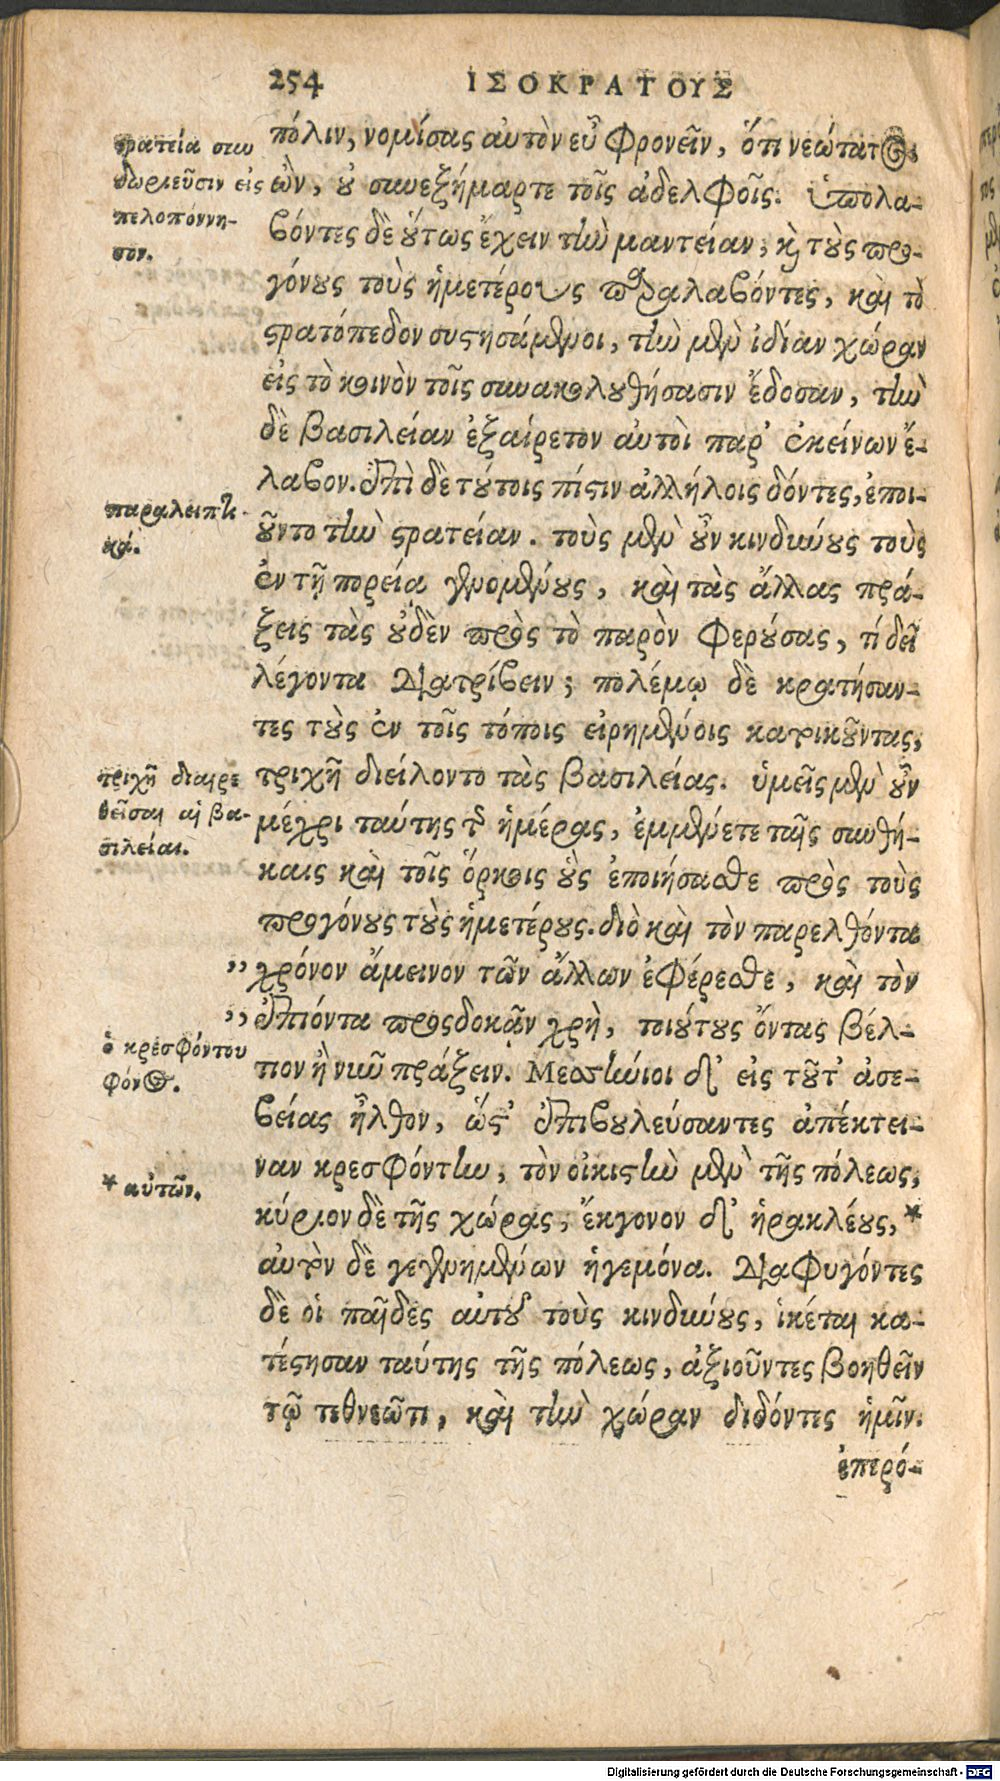 254 ΙΣΟΚΡΑΤΟΥΣ
πόλιν, νομίσας αὐτὸν εὖ φρονεῖν, ὅτι νεώτατος
ὢν, οὐ συνεξήμαρτε τοῖς ἀδελφοῖς. ὑπολα-
βόντες δὲ οὕτως ἔχειν τὴν μαντείαν, καὶ τοὺς προ-
γόνους τοὺς ἡμετέρους παραλαβόντες, καὶ τὸ
στρατόπεδον συστησάμενοι, τὴν μὲν ἰδίαν χώραν
εἰς τὸ κοινὸν τοῖς συνακολουθήσασιν ἔδοσαν, τὴν
δὲ βασιλείαν ἐξαίρετον αὐτοὶ παρ' ἐκείνων ἔ-
λαβον. ἐπὶ δὲ τούτοις πίστιν ἀλλήλοις δόντες, ἐποι-
οῦντο τὴν στρατείαν. τοὺς μὲν οὖν κινδύνους τοὺς
ἐν τῇ πορείᾳ γενομένους, καὶ τὰς ἄλλας πρά-
ξεις τὰς οὐδὲν πρὸς τὸ παρὸν φερούσας, τί δεῖ
λέγοντα διατρίβειν; πολέμῳ δὲ κρατήσαν-
τες τοὺς ἐν τοῖς τόποις εἰρημένοις κατοικοῦντας,
τριχῆ διείλοντο τὰς βασιλείας. ὑμεῖς μὲν οὖν
μέχρι ταύτης τῆς ἡμέρας, ἐμμένετε ταῖς συνθή-
καις καὶ τοῖς ὅρκοις οὓς ἐποιήσασθε πρὸς τοὺς
προγόνους τοὺς ἡμετέρους. διὸ καὶ τὸν παρελθόντα
,, χρόνον ἄμεινον τῶν ἄλλων ἐφέρεσθε, καὶ τὸν
,, ἐπιόντα προσδοκᾷν χρὴ, τοιούτους ὄντας βέλ-
τιον ἢ νῦν πράξειν. Μεσσήνιοι δ' εἰς τοῦτ' ἀσε-
βείας ἦλθον, ὥστ' ἐπιβουλεύσαντες ἀπέκτει-
ναν κρεσφόντην, τὸν οἰκιστὴν μὲν τῆς πόλεως,
κύριον δὲ τῆς χώρας, ἔκγονον δ' ἡρακλέους, *
αὐτὸν δὲ γεγενημένων ἡγεμόνα. διαφυγόντες
δὲ οἱ παῖδες αὐτοῦ τοὺς κινδύνους, ἱκέται κα-
τέστησαν ταύτης τῆς πόλεως, ἀξιοῦντες βοηθεῖν
τῷ τεθνεῶτι, καὶ τὴν χώραν διδόντες ἡμῖν.
ἐπερό-
στρατεία συν
δωριεῦσιν εἰς
πελοπόννη-
σον.
παραλειπτι-
κά.
τριχῆ διαιρε
θεῖσαι αἱ βα-
σιλείαι.
ὁ κρεσφόντου
φόνος.
* αὐτῶν.
Digitalisierung gefördert durch die Deutsche Forschungsgemeinschaft - DFG